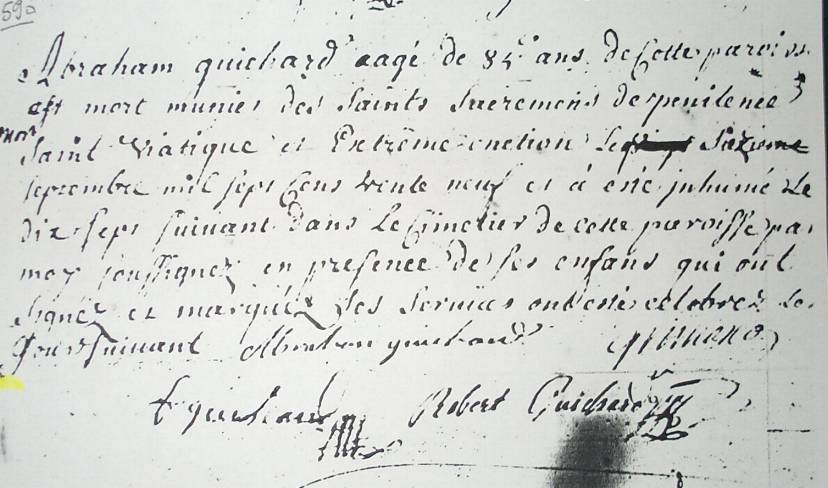 592
Abraham guichard aagé de 84 ans de Cette paroiss
est mort munies des saints sacremens de penitence
saint viatique et Extrême onction le Saziome
septembre mil sept Cens trente neuf et a esté inhumé Le
dix sept suivant dans Le Cimetier de cette paroisse par
moy soussignez en presence de ses enfans qui ont
signéz et marquéz Ses Services ont esté celebrez Le
Jour suivant Abraham guichard
f guichard Robert Guichard